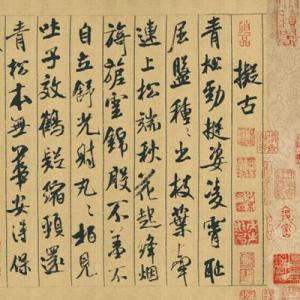 擬古
青松勁挺姿凌霄恥
屈盤種〻出枝葉牽
連上松端秋花起絳烟
旖旎雲錦殷不羞不
自立舒光射丸〻栢見
吐子效鶴疑縮頸還
青松本無華安得保